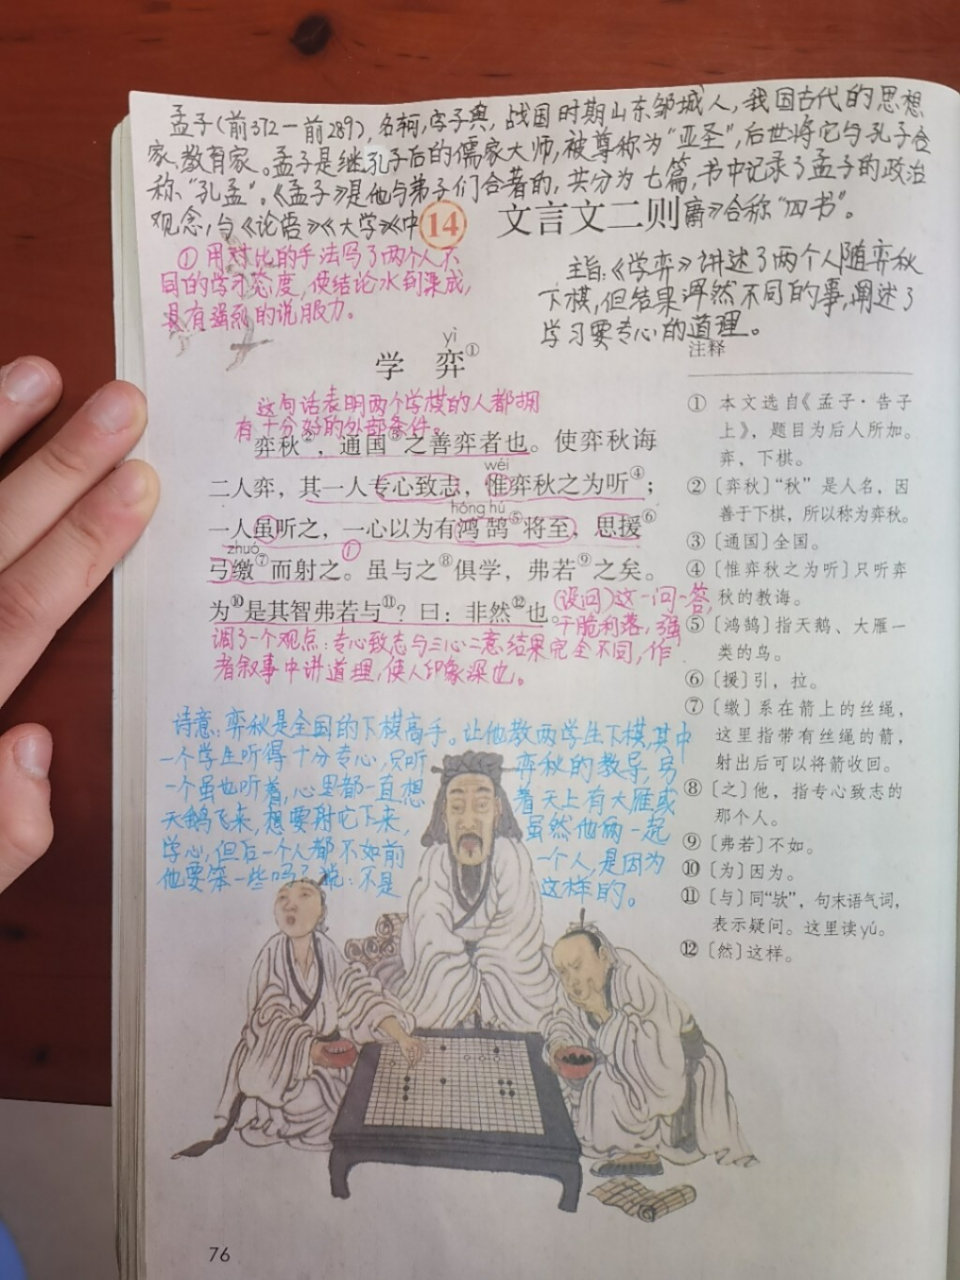 孟子(前372—前289),名轲,字子舆,战国时期山东邹城人,我国古代的思想
家、教育家。孟子是继孔子后的儒家大师,被尊称为“亚圣”,后世将它与孔子合
称“孔孟”。《孟子》是他与弟子们合著的,共分为七篇,书中记录了孟子的政治
观念,与《论语》《大学》《中庸》合称“四书”。
14 文言文二则
①用对比的手法写了两个人不
同的学习态度,使结论水到渠成,
具有强烈的说服力。
主旨:《学弈》讲述了两个人随弈秋
下棋,但结果浑然不同的事,阐述了
学习要专心的道理。
yì
学 弈①
这句话表明两个学棋的人都拥
有十分好的外部条件。
弈秋②,通国③之善弈者也。使弈秋诲
wéi
二人弈,其一人专心致志,惟弈秋之为听④;
hóng hú
一人虽听之,一心以为有鸿鹄⑤将至,思援⑥
zhuó
①
弓缴⑦而射之。虽与之⑧俱学,弗若⑨之矣。
为⑩是其智弗若与⑪?曰:非然⑫也。
(设问)这一问一答,
干脆利落,强
调了一个观点:专心致志与三心二意结果完全不同,作
者叙事中讲道理,使人印象深也。
诗意:弈秋是全国的下棋高手。让他教两学生下棋,其中
一个学生听得十分专心,只听弈秋的教导,另
一个虽也听着,心里都一直想着天上有大雁或
天鹅飞来,想要射它下来,虽然他俩一起
学心,但后一个人都不如前一个人,是因为
他要笨一些吗?说:不是这样的。
注释
① 本文选自《孟子·告子
上》,题目为后人所加。
弈,下棋。
②〔弈秋〕“秋”是人名,因
善于下棋,所以称为弈秋。
③〔通国〕全国。
④〔惟弈秋之为听〕只听弈
秋的教诲。
⑤〔鸿鹄〕指天鹅、大雁一
类的鸟。
⑥〔援〕引,拉。
⑦〔缴〕系在箭上的丝绳,
这里指带有丝绳的箭,
射出后可以将箭收回。
⑧〔之〕他,指专心致志的
那个人。
⑨〔弗若〕不如。
⑩〔为〕因为。
⑪〔与〕同“欤”,句末语气词,
表示疑问。这里读yú。
⑫〔然〕这样。
76